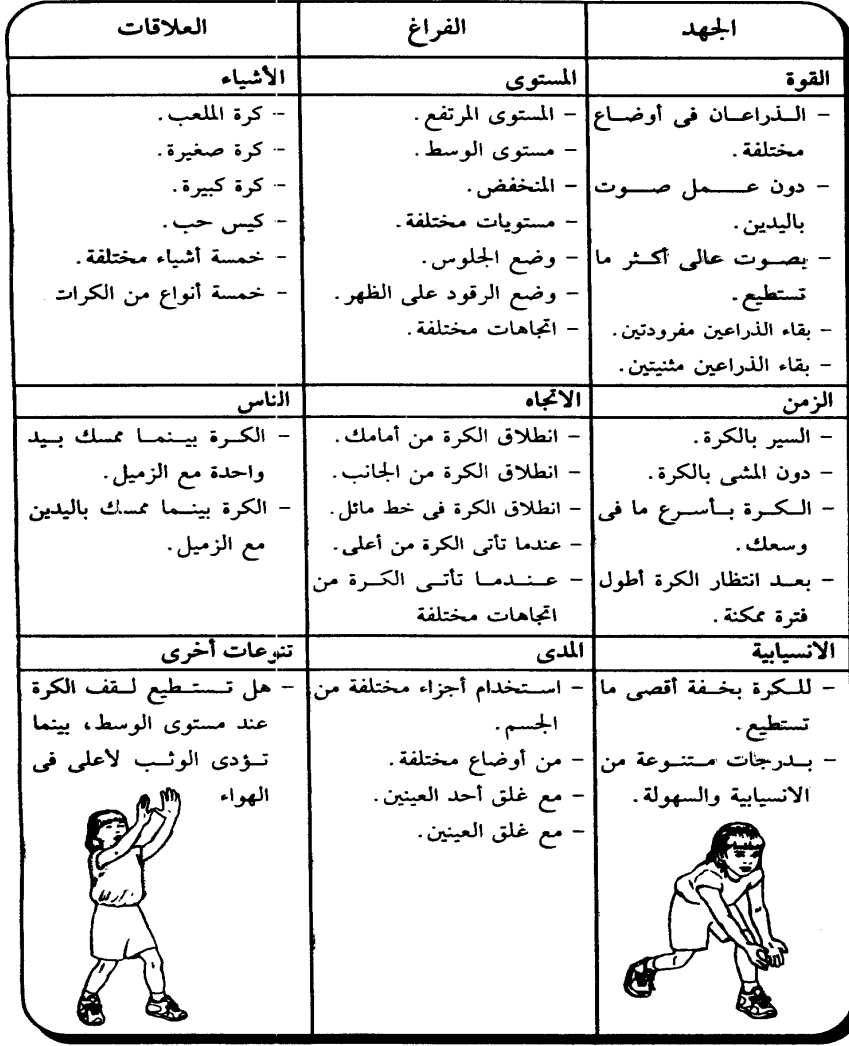 الجهد
الفراغ
العلاقات
القوة
- الـذراعـان فى أوضـاع
مختلفة.
- دون عـمـل صـوت
باليدين.
- بصـوت عالى أكـثر ما
تستطيع.
- بقاء الذراعين مفرودتين.
- بقاء الذراعين مثنيتين.
المستوى
- المستوى المرتفع.
- مستوى الوسط.
- المنخفض.
- مستويات مختلفة.
- وضع الجلوس.
- وضع الرقود على الظهر.
- اتجاهات مختلفة.
الأشياء
- كرة الملعب.
- كرة صغيرة.
- كرة كبيرة.
- كيس حب.
- خمسة أشياء مختلفة.
- خمسة أنواع من الكرات
الزمن
- السير بالكرة.
- دون المشى بالكرة.
- الـكـرة بـأسـرع ما فى
وسعك.
- بعـد انتظار الكرة أطول
فترة ممكنة.
الاتجاه
- انطلاق الكرة من أمامك.
- انطلاق الكرة من الجانب.
- انطلاق الكرة فى خط مائل.
- عندما تأتى الكرة من أعلى.
- عـنـدمـا تأتـى الكـرة من
اتجاهات مختلفة
الناس
- الكـرة بيـنمـا ممسك بـيد
واحدة مع الزميل.
- الكرة بينـما ممسك باليدين
مع الزميل.
الانسيابية
- للـكرة بخـفة أقصى ما
تستطيع.
- بـدرجات مـتنـوعة من
الانسيابية والسهولة.
المدى
- اسـتخدام أجزاء مختلفة من
الجسم.
- من أوضاع مختلفة.
- مع غلق أحد العينين.
- مع غلق العينين.
تنوعات أخرى
- هل تـسـتـطيع لـقف الكرة
عند مستوى الوسط، بينما
تـؤدى الوثـب لأعلى فى
الهواء